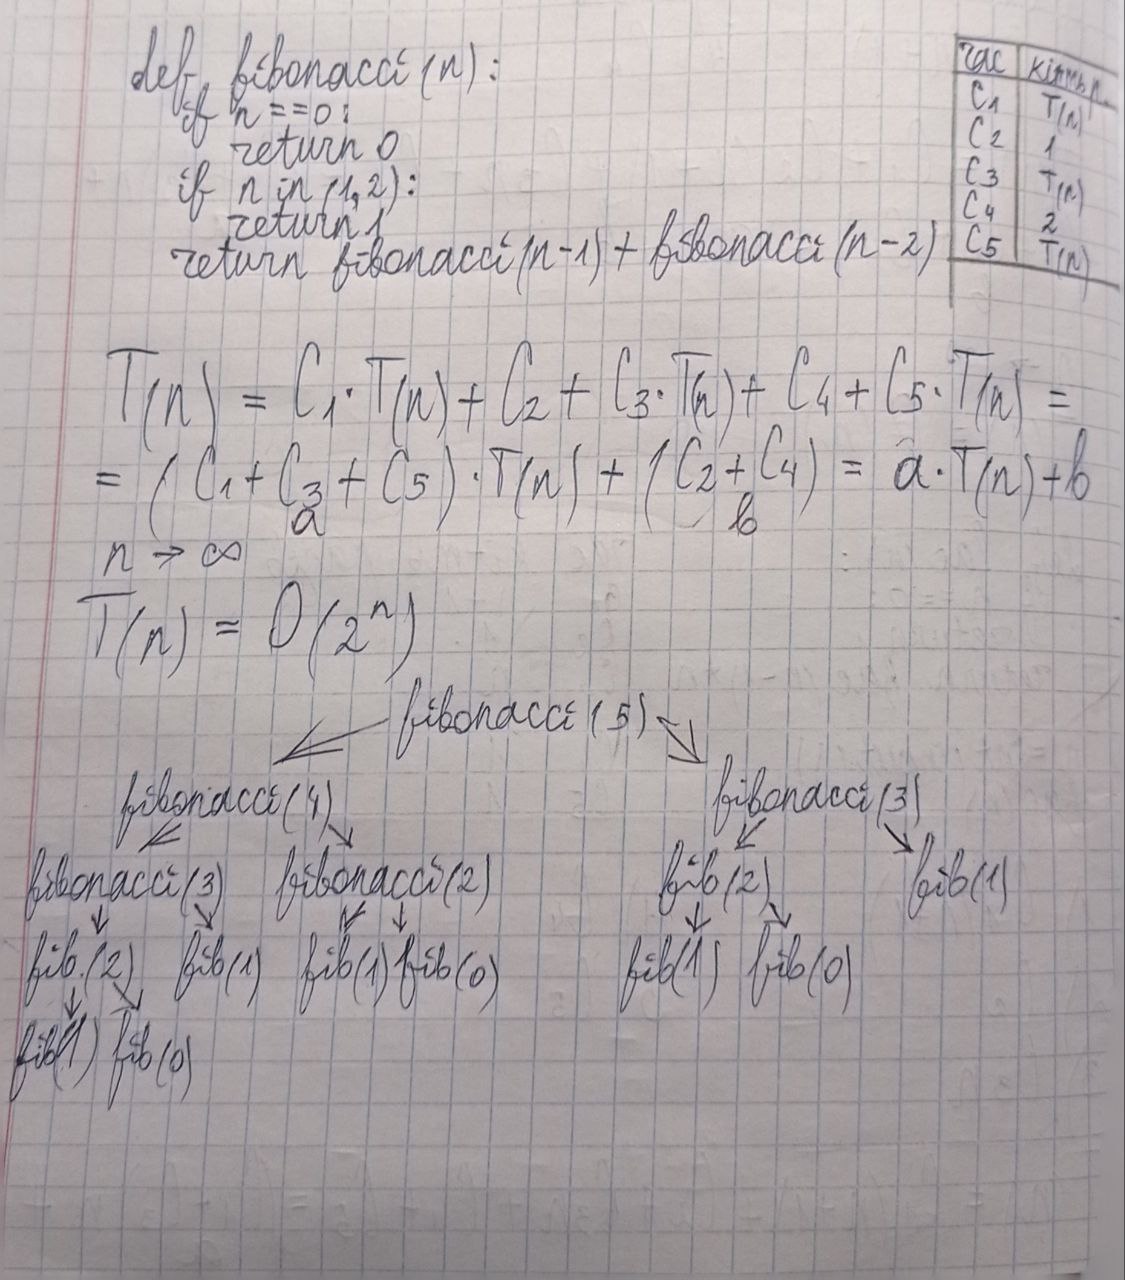 def fibonacci(n):
if n==0:
return 0
if n in (1,2):
return 1
return fibonacci(n-1) + fibonacci(n-2)
час
C₁ T(n)
C₂ 1
C₃ T(n)
C₄ 2
C₅ T(n)
T(n) = C₁·T(n) + C₂ + C₃·T(n) + C₄ + C₅·T(n) =
= (C₁ + C₃ + C₅)·T(n) + (C₂ + C₄) = a·T(n) + b
a b
n → ∞
T(n) = O(2ⁿ)
fibonacci(5)
fibonacci(4) fibonacci(3)
fibonacci(3) fibonacci(2) fib(2) fib(1)
fib.(2) fib(1) fib(1) fib(0) fib(1) fib(0)
fib(1) fib(0)